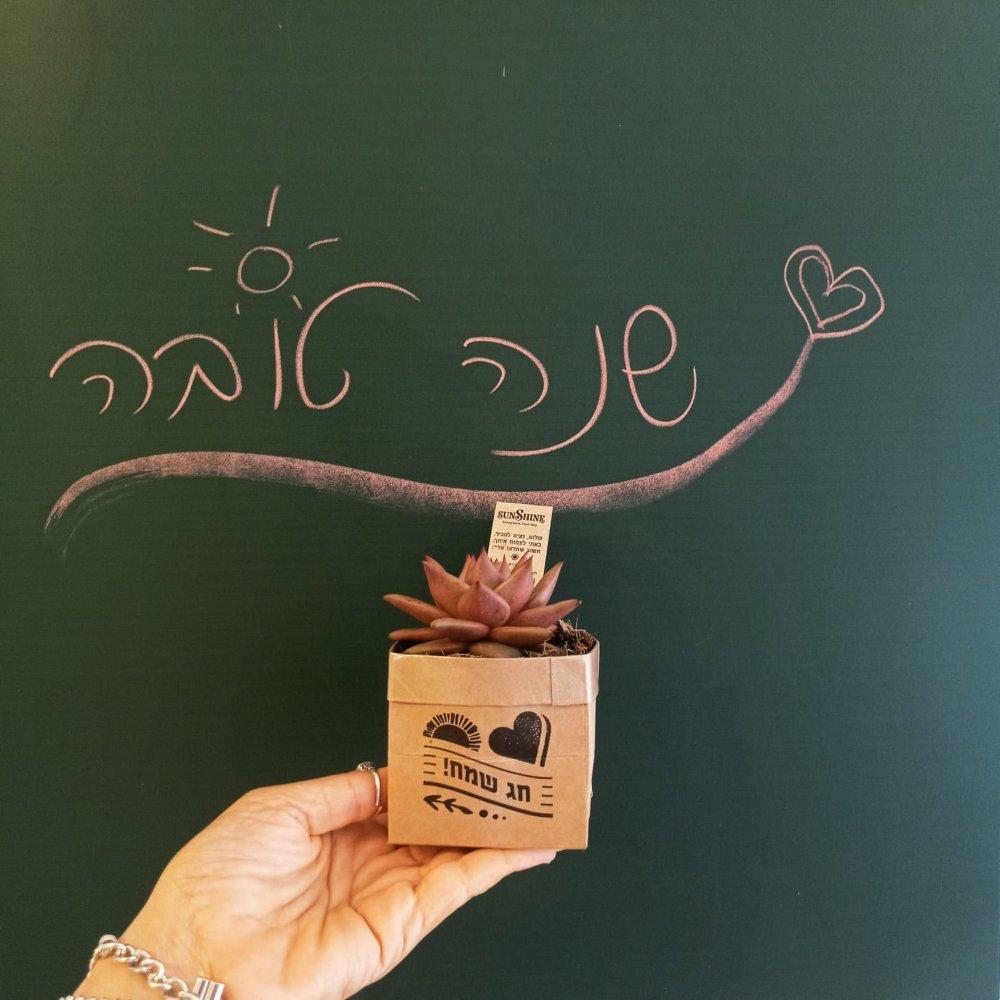 שנה טובה
SUNSHINE
שלום, נעים להכיר,
באתי לצמוח איתך.
חשוב שתדעו עליי:
חג שמח!